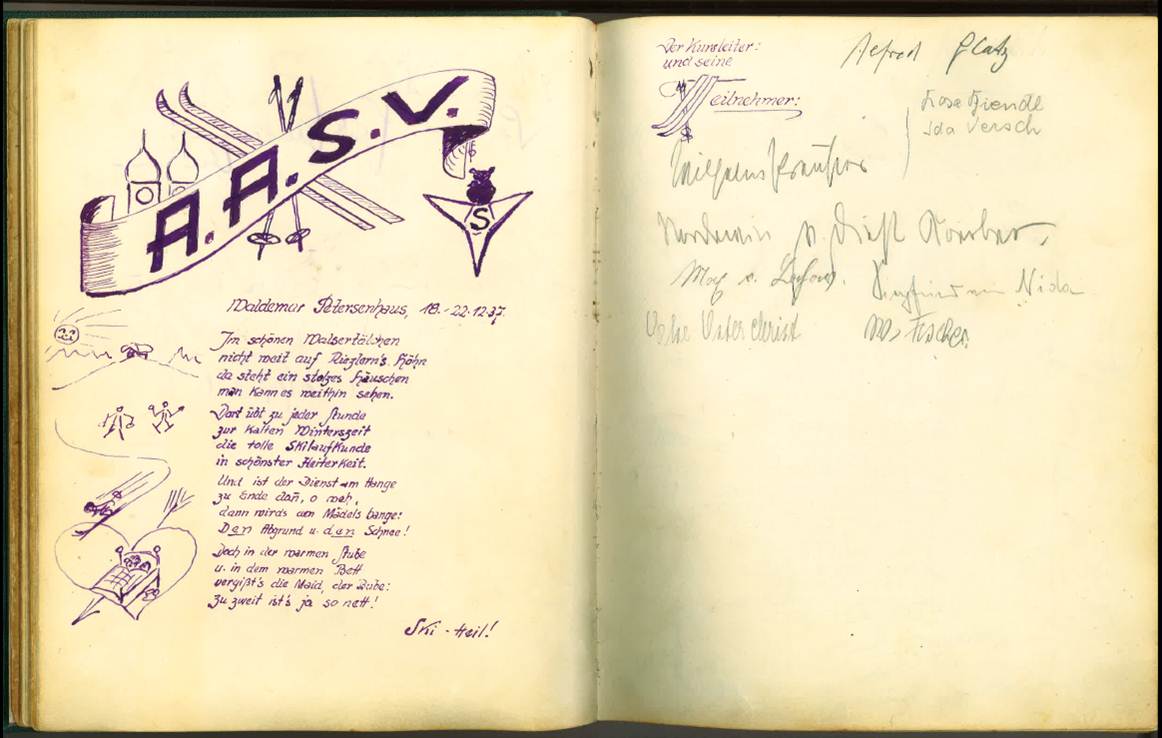 A.A.S.V.
S
Waldemar Petersenhaus, 18.-22.12.37.
Im schönen Walsertälchen
nicht weit auf Riezlern's Höhn
da steht ein stolzes Häuschen
man kann es weithin sehen.
Dort übt zu jeder Stunde
zur kalten Winterszeit
die tolle Skilaufkunde
in schönster Heiterkeit.
Und ist der Dienst am Hange
zu Ende dañ, o weh,
dann wirds den Mädels bange:
Den Abgrund u. den Schnee!
Doch in der warmen Stube
u. in dem warmen Bett
vergißt's die Maid, der Bube:
Zu zweit ist's ja so nett!
Ski-Heil!
Der Kursleiter:
und seine
Teilnehmer:
Alfred Glatz
Rosa
Ida Versch
Wilhelm
v. Diest
Max v.
Siegfried von Nida
W. Fischer.